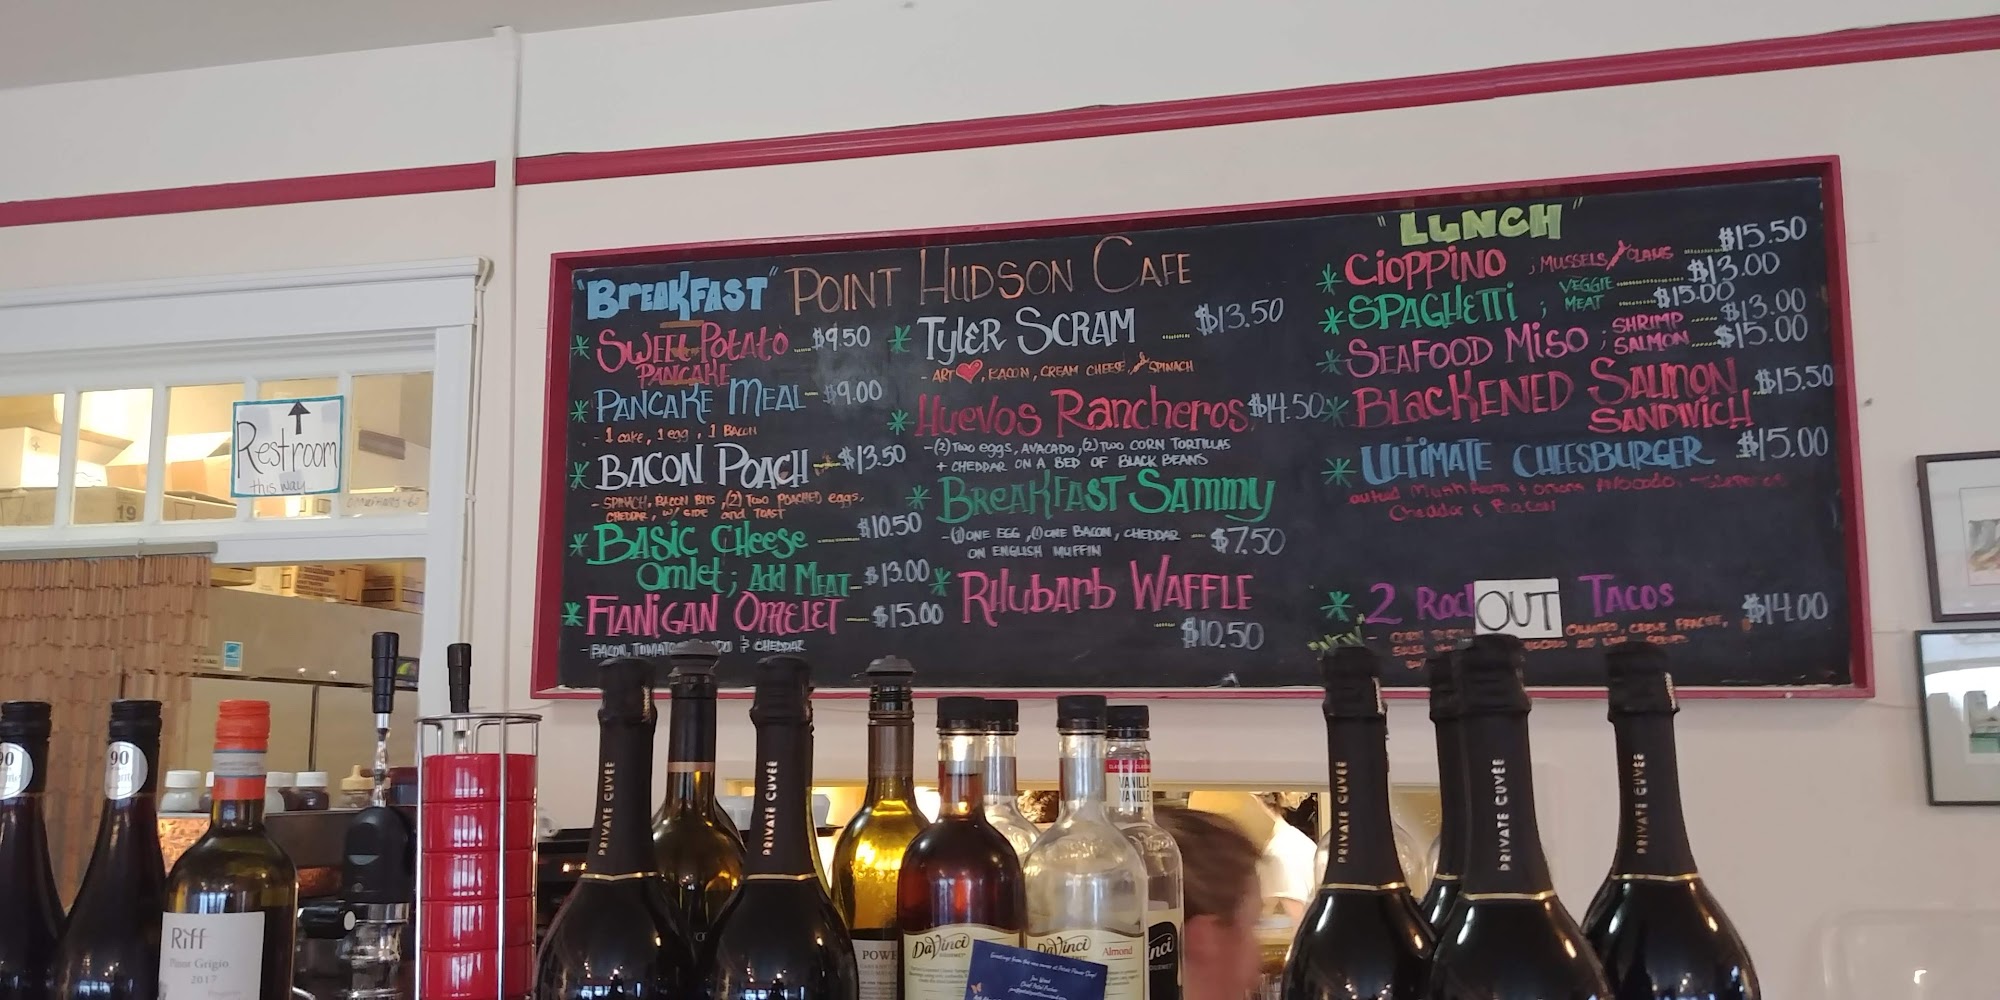 "BREAKFAST" POINT HUDSON CAFE
* SWEET POTATO PANCAKE $9.50
* PANCAKE MEAL $9.00
- 1 cake, 1 egg, 1 BACON
* BACON POACH $13.50
- SPINACH, BACON BITS, (2) TWO POACHED eggs,
CHEDDAR, W/ SIDE and TOAST
* BASIC CHEESE $10.50
Omlet; Add MEAT $13.00
* FLANIGAN OMELET $15.00
- BACON, TOMATO & CHEDDAR
* TYLER SCRAM $13.50
- ART ❤, BACON, CREAM CHEESE, & SPINACH
* Huevos Rancheros $14.50
- (2) TWO eggs, AVACADO, (2) TWO CORN TORTILLAS
+ CHEDDAR ON A BED OF BLACK BEANS
* BREAKFAST SAMMY
- (1) ONE EGG, (1) ONE BACON, CHEDDAR $7.50
ON ENGLISH MUFFIN
* RHubarb WAFFLE
$10.50
"LUNCH"
* CIOPPINO ; MUSSELS & CLAMS $15.50
* SPAGHETTI ; VEGGIE $13.00
MEAT $15.00
* SEAFOOD MISO ; SHRIMP $13.00
SALMON $15.00
* BLACKENED SALMON SANDWICH $15.50
* ULTIMATE CHEESBURGER $15.00
Cheddar & Bacon
* 2 Roc OUT TACOS $14.00
Restroom
this way
19
90
90
Riff
Pinot Grigio
2017
PRIVATE CUVÉE
PRIVATE CUVÉE
POWE
DaVinci
GOURMET
DaVinci
GOURMET
Almond
VANILLE
inci
PRIVATE CUVÉE
PRIVATE CUVÉE
PRIVATE CUVÉE